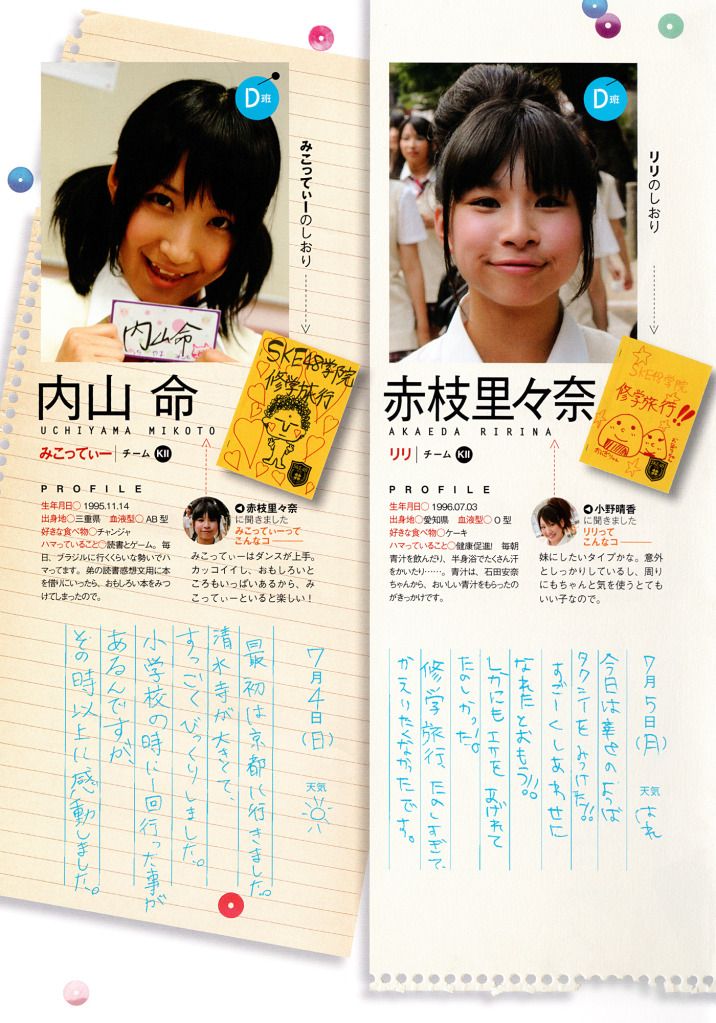 D班
みこってぃーのしおり
内山命
SKE48学院
修学旅行
内山 命
UCHIYAMA MIKOTO
みこってぃー チーム KII
PROFILE
生年月日○ 1995.11.14
出身地○三重県 血液型○AB型
好きな食べ物○チャンジャ
ハマっていること○読書とゲーム。毎
日、ブラジルに行くくらいな勢いでハ
マってます。弟の読書感想文用に本
を借りにいったら、おもしろい本をみつ
けてしまったので。
赤枝里々奈
に聞きました
みこってぃーって
こんなコ
みこってぃーはダンスが上手。
カッコイイし、おもしろいと
ころもいっぱいあるから、み
こってぃーといると楽しい!
7月4日(日) 天気
最初は京都に行きました。
清水寺が大きくて、
すっごくびっくりしました。
小学校の時に一回行った事が
あるんですが、
その時以上に感動しました。
D班
リリのしおり
SKE48学院
修学旅行!!
赤枝里々奈
AKAEDA RIRINA
リリ チーム KII
PROFILE
生年月日○ 1996.07.03
出身地○愛知県 血液型○O型
好きな食べ物○ケーキ
ハマっていること○健康促進! 毎朝
青汁を飲んだり、半身浴でたくさん汗
をかいたり……。青汁は、石田安奈
ちゃんから、おいしい青汁をもらったの
がきっかけです。
小野晴香
に聞きました
リリって
こんなコ
妹にしたいタイプかな。意外
としっかりしているし、周り
にもちゃんと気を使うとても
いい子なので。
7月5日(月) 天気 はれ
今日は幸せのよつば
タクシーをみつけた!!
すごーくしあわせに
なれたとおもう!!
しかにもエサをあげれて
たのしかった!。
修学旅行、たのしすぎて、
かえりたくなかったです。